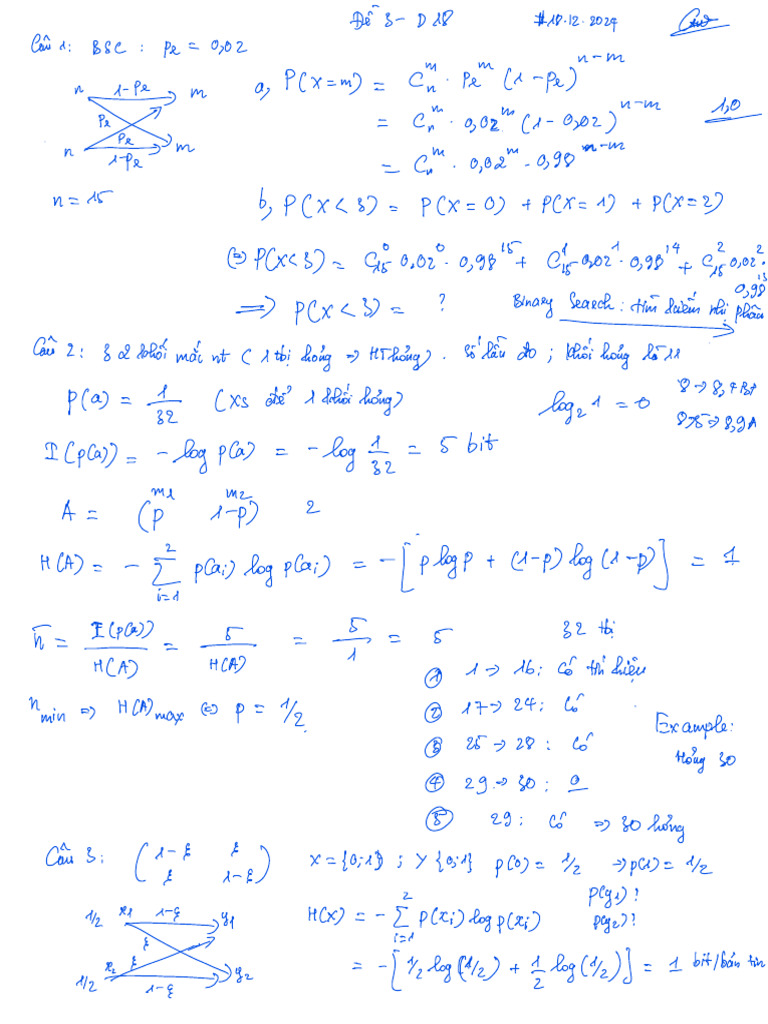 Đề 3 - D18 #18.12.2024
Câu 1: BSC : Pe = 0,02
n 1-Pe m
Pe
Pe
n 1-Pe m
n = 15
a, P(X=m) = C_n^m . Pe^m (1-Pe)^{n-m}
= C_n^m . 0,02^m (1-0,02)^{n-m} 1,0
= C_n^m . 0,02^m . 0,98^{n-m}
b, P(X<3) = P(X=0) + P(X=1) + P(X=2)
⇔ P(X<3) = C_15^0 0,02^0 . 0,98^15 + C_15^1 0,02^1 . 0,98^14 + C_15^2 0,02^2 . 0,98^13
⇒ P(X<3) = ? Binary Search: tìm kiếm nhị phân
Câu 2: 32 khối mắc nt (1 tbị hỏng → HT hỏng). Số lần đo ; khối hỏng là
p(a) = 1/32 (xs để 1 khối hỏng) log_2 1 = 0
I(p(a)) = -log p(a) = -log 1/32 = 5 bit
m1 m2
A = (p 1-p) 2
H(A) = - ∑_{i=1}^2 p(a_i) log p(a_i) = -[p log p + (1-p) log (1-p)] = 1
n̄ = I(p(a))/H(A) = 5/H(A) = 5/1 = 5
n_min ⇒ H(A)_max ⇔ p = 1/2.
32 tbị
① 1 → 16: Có tín hiệu
② 17 → 24: Có
③ 25 → 28: Có
④ 29 → 30: 0
⑤ 29: Có ⇒ 30 hỏng
Example:
Hỏng 30
Câu 3: (1-ε ε
ε 1-ε)
X = {0;1} ; Y {0;1} p(0) = 1/2 → p(1) = 1/2
1/2 x1 1-ε y1
ε
ε
1/2 x2 1-ε y2
p(y1)?
p(y2)?
H(X) = - ∑_{i=1}^2 p(x_i) log p(x_i)
= -[1/2 log(1/2) + 1/2 log(1/2)] = 1 bit/bản tin